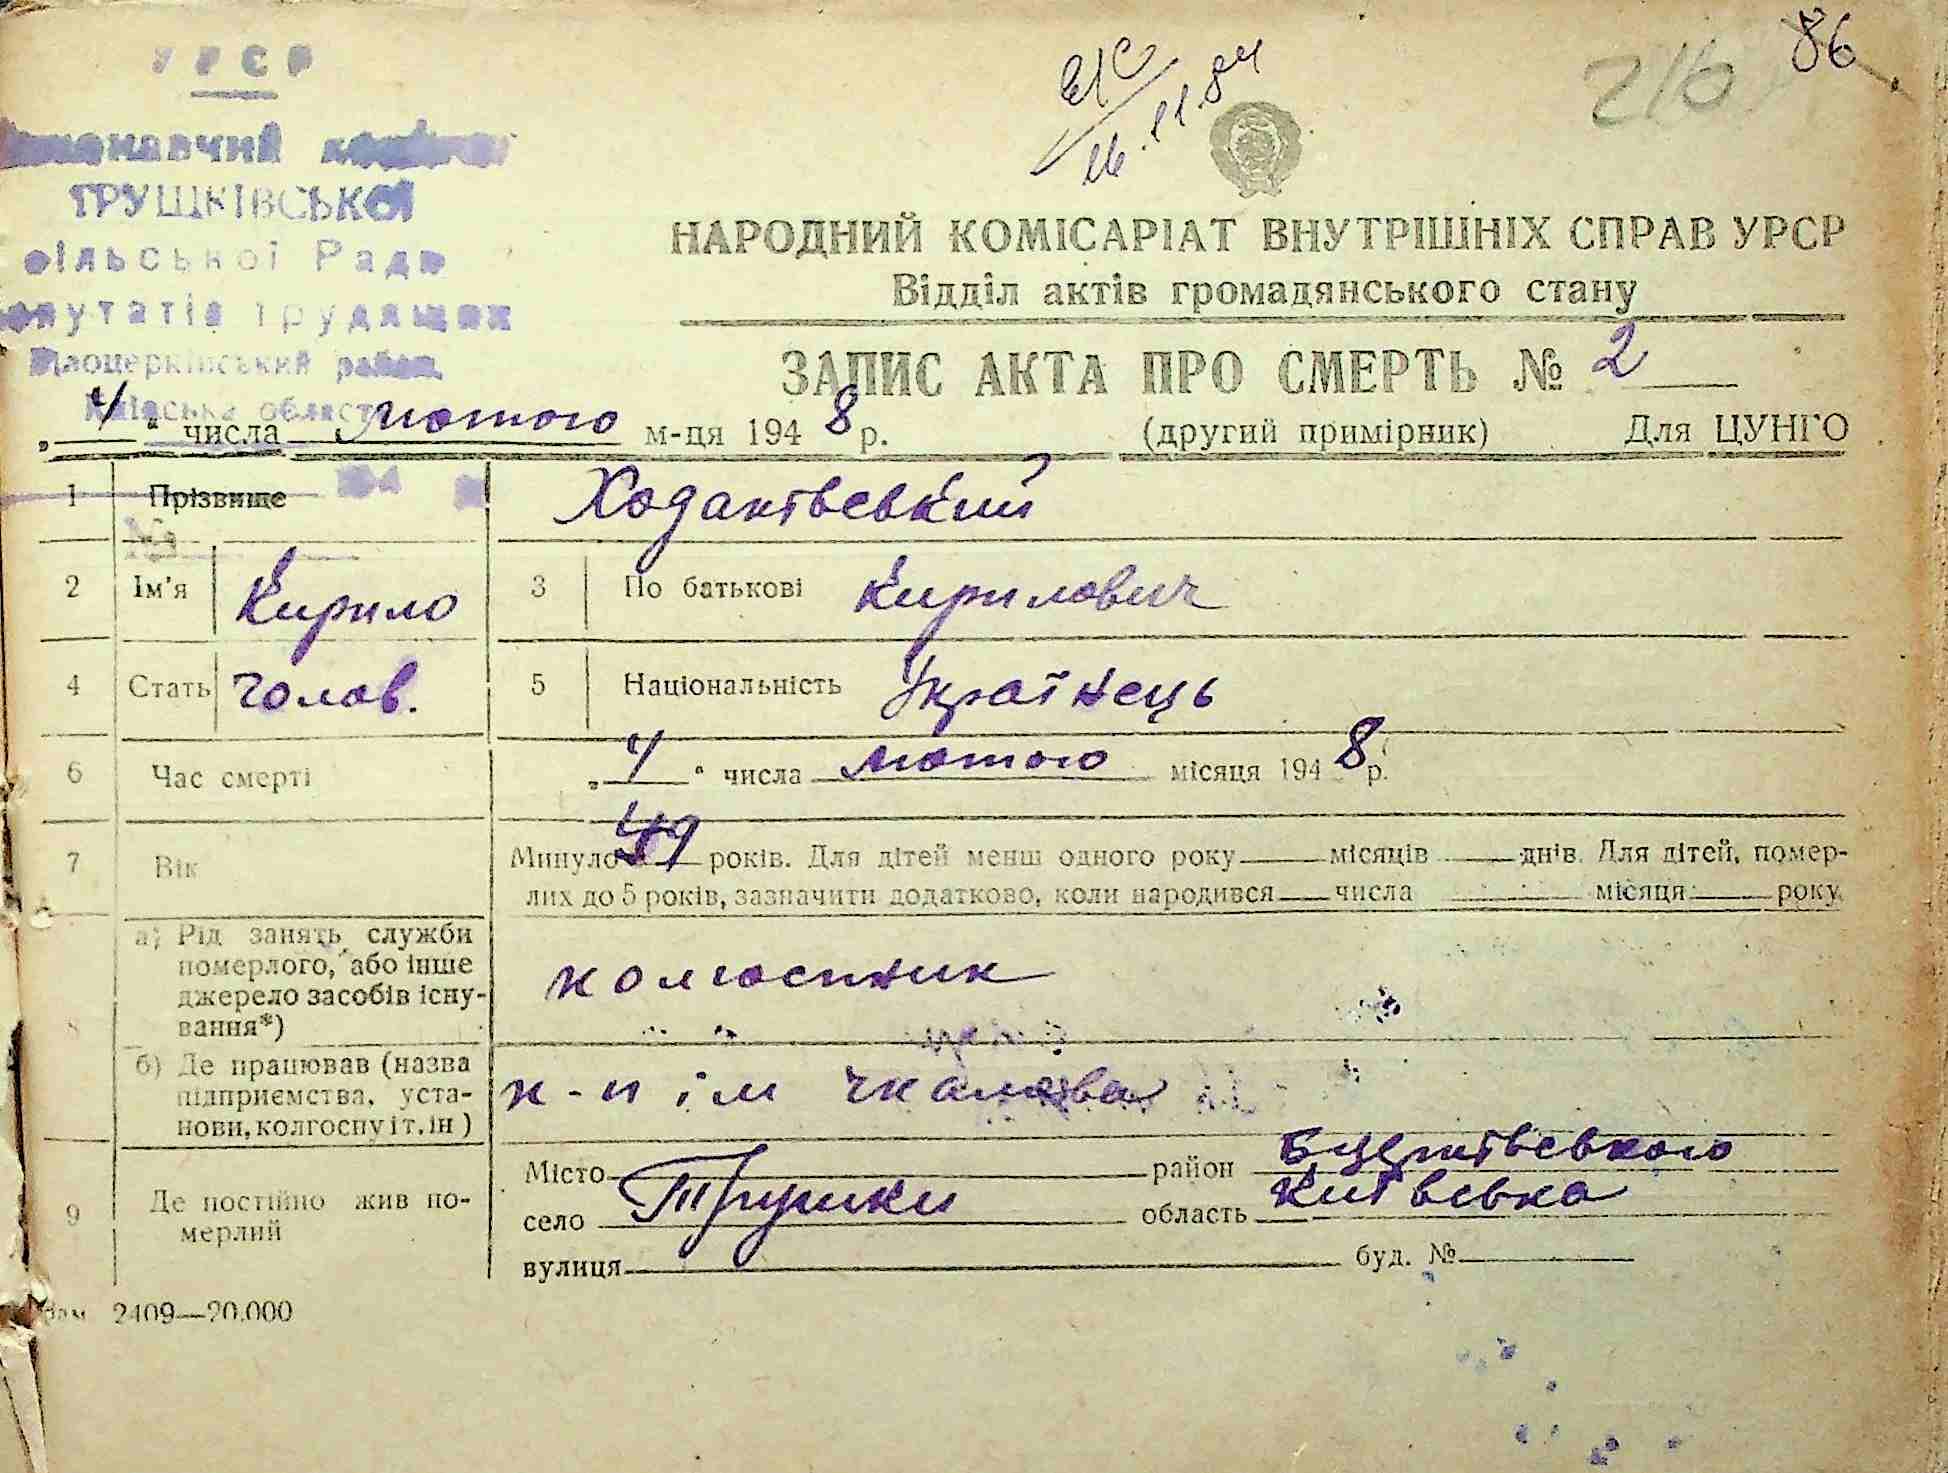 УРСР
Виконавчий комітет
ТРУШКІВСЬКОЇ
сільської Ради
депутатів трудящих
Білоцерківський район,
Київська область
16.11.84
216
86
НАРОДНИЙ КОМІСАРІАТ ВНУТРІШНІХ СПРАВ УРСР
Відділ актів громадянського стану
ЗАПИС АКТА ПРО СМЕРТЬ № 2
„ 4 “ числа лютого м-ця 194 8 р. (другий примірник) Для ЦУНГО
194
№
1 Прізвище Ходаківський
2 Ім'я Кирило 3 По батькові Кирилович
4 Стать чолов. 5 Національність Українець
6 Час смерті „ 4 “ числа лютого місяця 194 8 р.
7 Вік Минуло 49 років. Для дітей менш одного року місяців днів. Для дітей, помер-
лих до 5 років, зазначити додатково, коли народився числа місяця року
8 а) Рід занять служби
померлого, або інше
джерело засобів існу-
вання*) колгоспник
б) Де працював (назва
підприємства, уста-
нови, колгоспу і т. ін) к-п ім Чкалова
9 Де постійно жив по-
мерлий
Місто район Бцерківського
село Трушки область Київська
вулиця буд. №
Зам. 2409—20.000